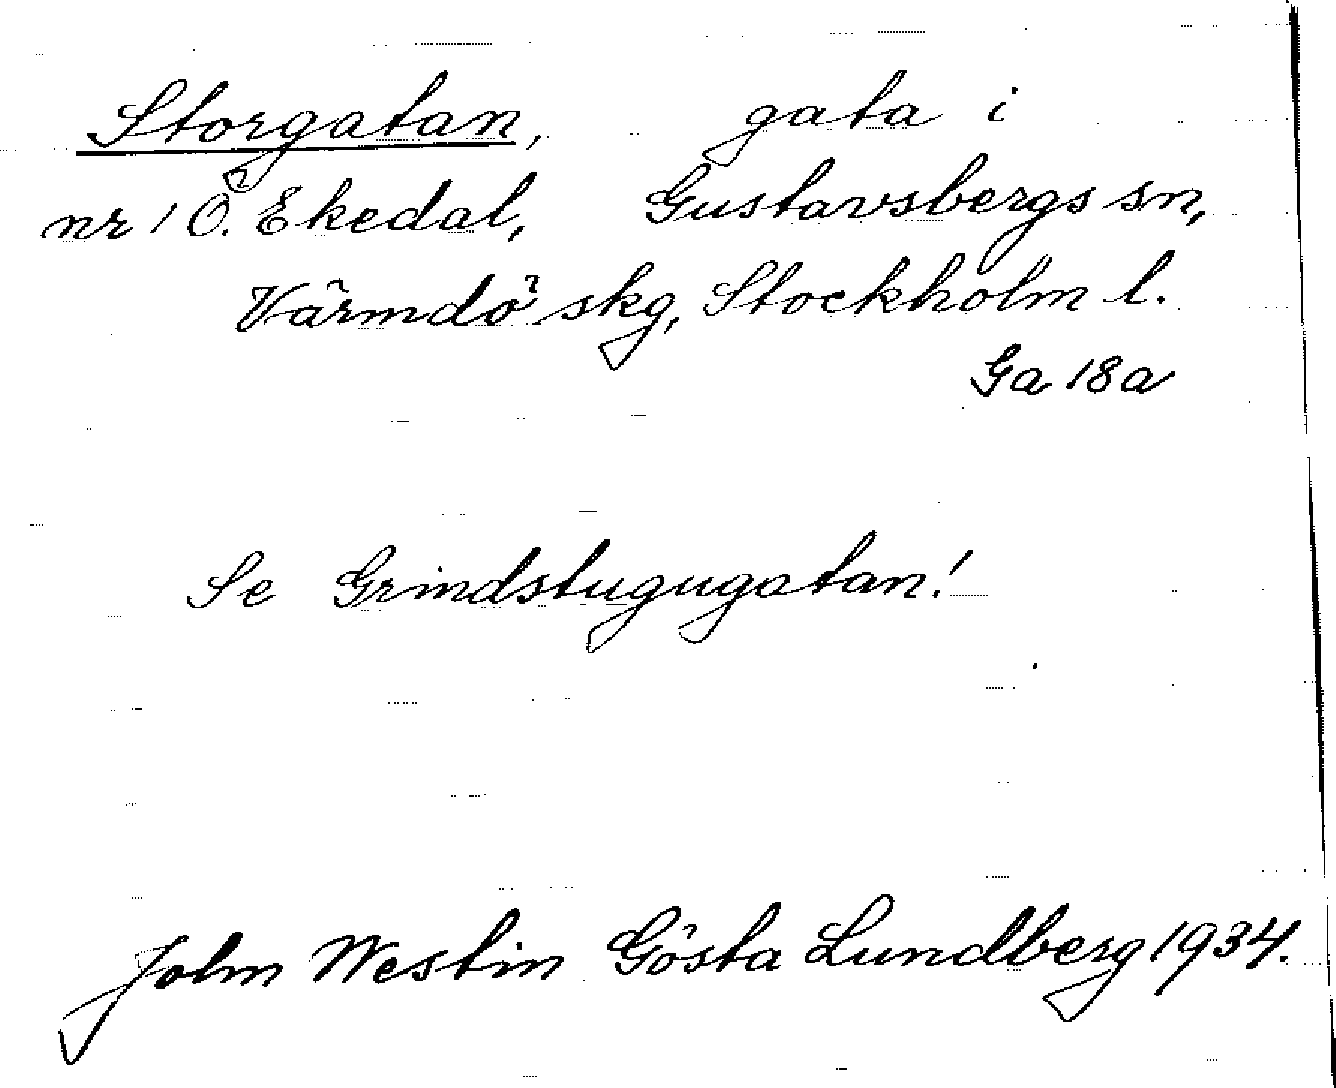 Storgatan, gata i
nr 1 Ö. Ekedal, Gustavsbergs sn,
Värmdö skg, Stockholm l.
Ga 18a
Se Grindstugugatan!
John Westin Gösta Lundberg 1934.